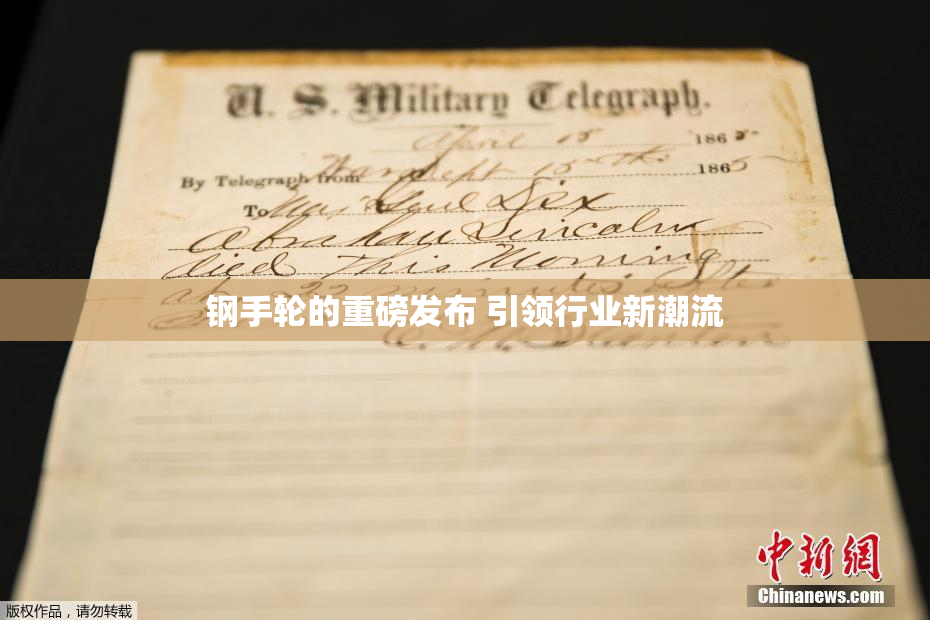 U. S. Military Telegraph.
April 15 1865
By Telegraph from War Dept 15th 1865
To Maj Genl Dix
Abraham Lincoln
died This Morning
at 22 minutes after
钢手轮的重磅发布 引领行业新潮流
中新網
Chinanews.com
版权作品，请勿转载